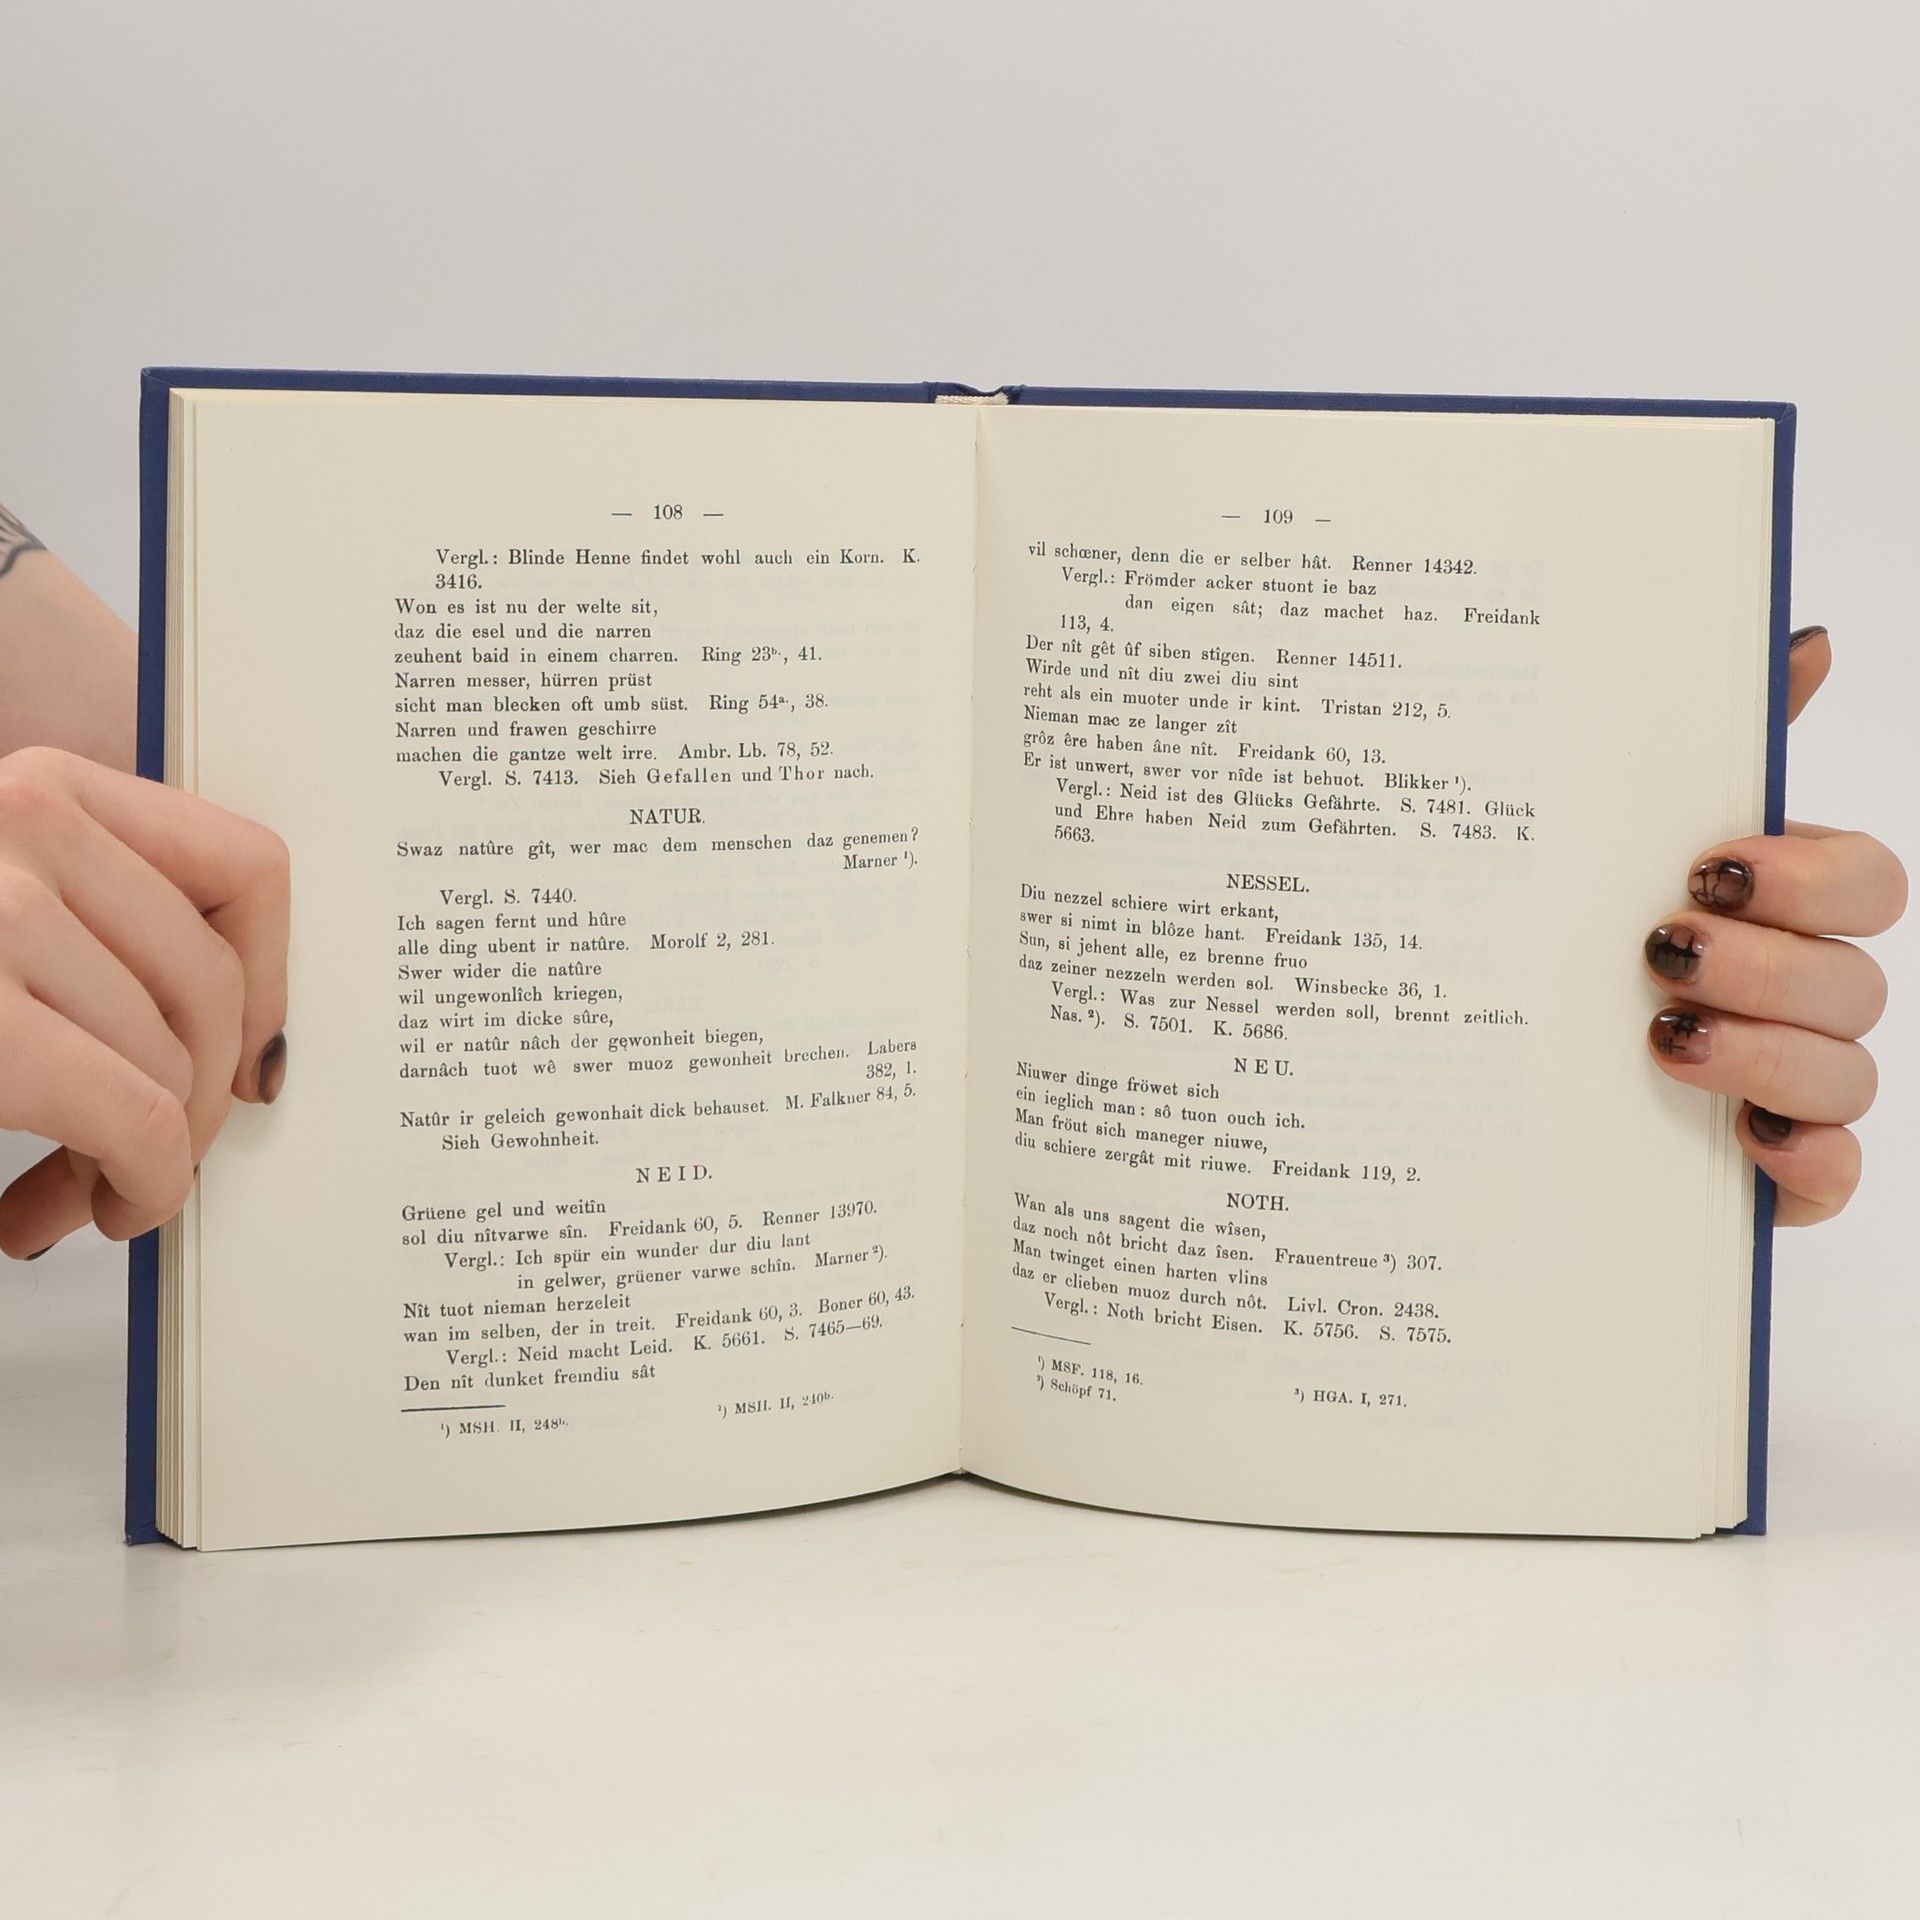 — 108 —
Vergl.: Blinde Henne findet wohl auch ein Korn. K.
3416.
Won es ist nu der welte sit,
daz die esel und die narren
zeuhent baid in einem charren. Ring 23ᵇ·, 41.
Narren messer, hürren prüst
sicht man blecken oft umb süst. Ring 54ᵃ·, 38.
Narren und frawen geschirre
machen die gantze welt irre. Ambr. Lb. 78, 52.
Vergl. S. 7413. Sieh Gefallen und Thor nach.
NATUR.
Swaz natûre gît, wer mac dem menschen daz genemen?
Marner ¹).
Vergl. S. 7440.
Ich sagen fernt und hûre
alle ding ubent ir natûre. Morolf 2, 281.
Swer wider die natûre
wil ungewonlîch kriegen,
daz wirt im dicke sûre,
wil er natûr nâch der gewonheit biegen,
darnâch tuot wê swer muoz gewonheit brechen. Labers
382, 1.
Natûr ir geleich gewonhait dick behauset. M. Falkner 84, 5.
Sieh Gewohnheit.
NEID.
Grüene gel und weitîn
sol diu nîtvarwe sîn. Freidank 60, 5. Renner 13970.
Vergl.: Ich spür ein wunder dur diu lant
in gelwer, grüener varwe schîn. Marner ²).
Nît tuot nieman herzeleit
wan im selben, der in treit. Freidank 60, 3. Boner 60, 43.
Vergl.: Neid macht Leid. K. 5661. S. 7465—69.
Den nît dunket fremdiu sât
¹) MSH. II, 248ᵇ· ²) MSH. II, 240ᵇ·
— 109 —
vil schœner, denn die er selber hât. Renner 14342.
Vergl.: Frömder acker stuont ie baz
dan eigen sât; daz machet haz. Freidank
113, 4.
Der nît gêt ûf siben stîgen. Renner 14511.
Wirde und nît diu zwei diu sint
reht als ein muoter unde ir kint. Tristan 212, 5.
Nieman mac ze langer zît
grôz êre haben âne nît. Freidank 60, 13.
Er ist unwert, swer vor nîde ist behuot. Blikker ¹).
Vergl.: Neid ist des Glücks Gefährte. S. 7481. Glück
und Ehre haben Neid zum Gefährten. S. 7483. K.
5663.
NESSEL.
Diu nezzel schiere wirt erkant,
swer si nimt in blôze hant. Freidank 135, 14.
Sun, si jehent alle, ez brenne fruo
daz zeiner nezzeln werden sol. Winsbecke 36, 1.
Vergl.: Was zur Nessel werden soll, brennt zeitlich.
Nas. ²). S. 7501. K. 5686.
NEU.
Niuwer dinge fröwet sich
ein ieglich man: sô tuon ouch ich.
Man fröut sich maneger niuwe,
diu schiere zergât mit riuwe. Freidank 119, 2.
NOTH.
Wan als uns sagent die wîsen,
daz noch nôt bricht daz îsen. Frauentreue ³) 307.
Man twinget einen harten vlins
daz er clieben muoz durch nôt. Livl. Cron. 2438.
Vergl.: Noth bricht Eisen. K. 5756. S. 7575.
¹) MSF. 118, 16.
²) Schöpf 71. ³) HGA. I, 271.